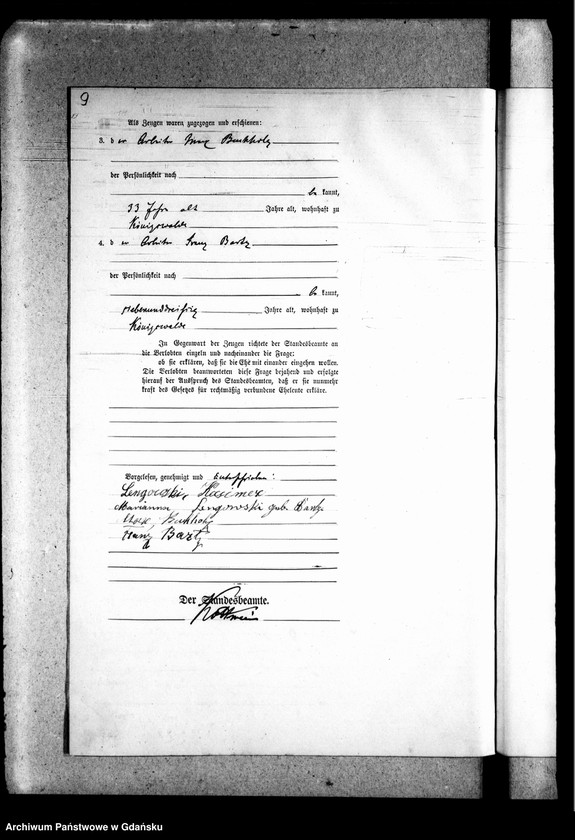 9
Als Zeugen waren zugezogen und erschienen:
3. der Arbeiter Max Buchholz
der Persönlichkeit nach
be kannt,
33 Jahre alt Jahre alt, wohnhaft zu
Königswalde
4. der Arbeiter Franz Bartz
der Persönlichkeit nach
be kannt,
siebenunddreißig Jahre alt, wohnhaft zu
Königswalde
In Gegenwart der Zeugen richtete der Standesbeamte an
die Verlobten einzeln und nacheinander die Frage:
ob sie erklären, daß sie die Ehe mit einander eingehen wollen.
Die Verlobten beantworteten diese Frage bejahend und erfolgte
hierauf der Ausspruch des Standesbeamten, daß er sie nunmehr
kraft des Gesetzes für rechtmäßig verbundene Eheleute erkläre.
Vorgelesen, genehmigt und unterschrieben:
Lengowski, Kasimex
Marianna Lengowski geb. Bartz
Max Buchholz
Franz Bartz
Der Standesbeamte.
Archiwum Państwowe w Gdańsku